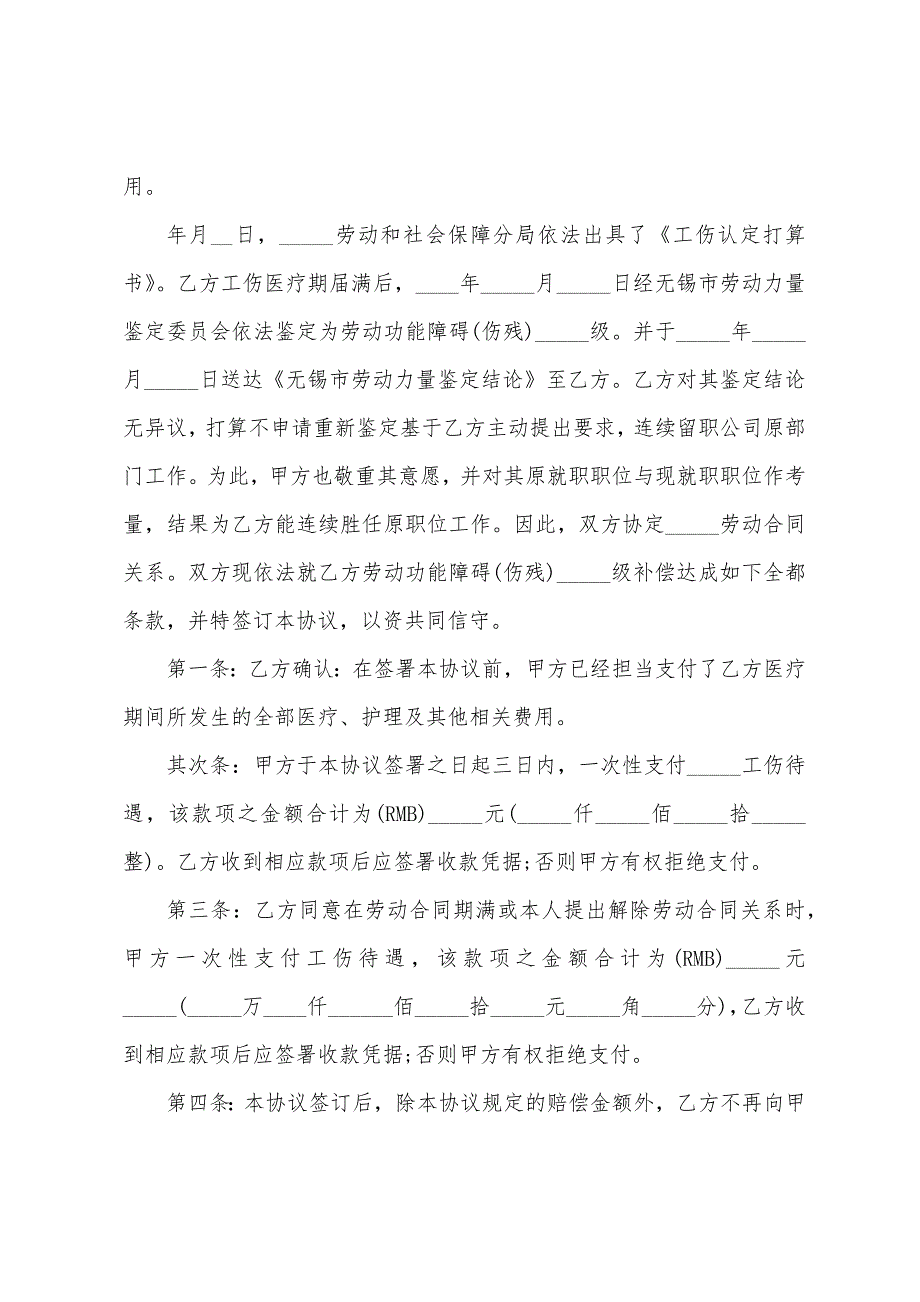 用。
年月__日，_____劳动和社会保障分局依法出具了《工伤认定打算
书》。乙方工伤医疗期届满后，____年_____月_____日经无锡市劳动力量
鉴定委员会依法鉴定为劳动功能障碍(伤残)_____级。并于_____年_____
月_____日送达《无锡市劳动力量鉴定结论》至乙方。乙方对其鉴定结论
无异议，打算不申请重新鉴定基于乙方主动提出要求，连续留职公司原部
门工作。为此，甲方也敬重其意愿，并对其原就职职位与现就职职位作考
量，结果为乙方能连续胜任原职位工作。因此，双方协定_____劳动合同
关系。双方现依法就乙方劳动功能障碍(伤残)_____级补偿达成如下全都
条款，并特签订本协议，以资共同信守。
第一条：乙方确认：在签署本协议前，甲方已经担当支付了乙方医疗
期间所发生的全部医疗、护理及其他相关费用。
其次条：甲方于本协议签署之日起三日内，一次性支付_____工伤待
遇，该款项之金额合计为(RMB)_____元(_____仟_____佰_____拾_____
整)。乙方收到相应款项后应签署收款凭据;否则甲方有权拒绝支付。
第三条：乙方同意在劳动合同期满或本人提出解除劳动合同关系时，
甲方一次性支付工伤待遇，该款项之金额合计为(RMB)_____元
_____(_____万____仟______佰_____拾_____元_____角_____分)，乙方收
到相应款项后应签署收款凭据;否则甲方有权拒绝支付。
第四条：本协议签订后，除本协议规定的赔偿金额外，乙方不再向甲